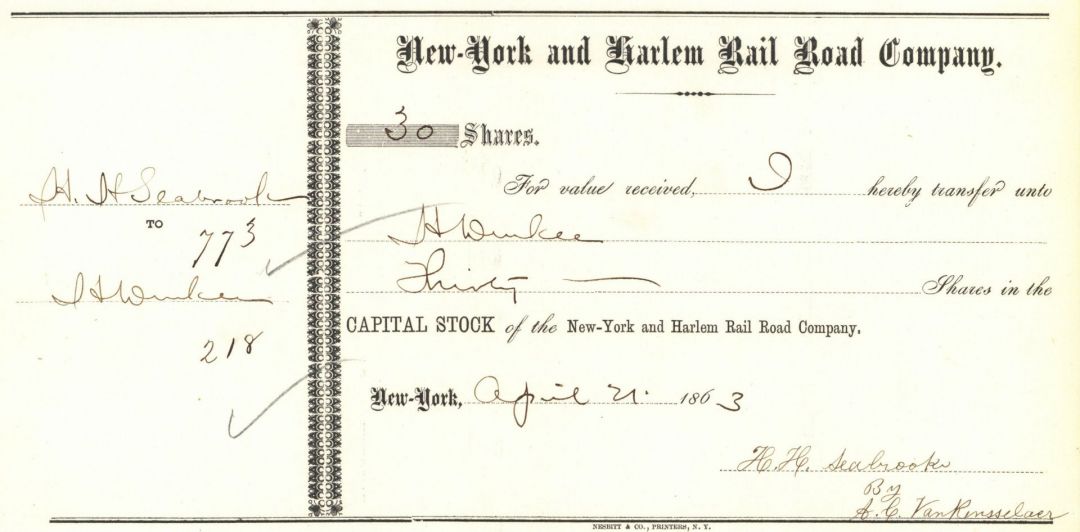 H. H Seabrook
TO
773
218
New-York and Harlem Rail Road Company.
30 Shares.
For value received, I hereby transfer unto
Thirty — Shares in the
CAPITAL STOCK of the New-York and Harlem Rail Road Company.
New-York, April 21. 1863
H. H. Seabrook
By
A. C. Van Rensselaer
NESBITT & CO., PRINTERS, N. Y.